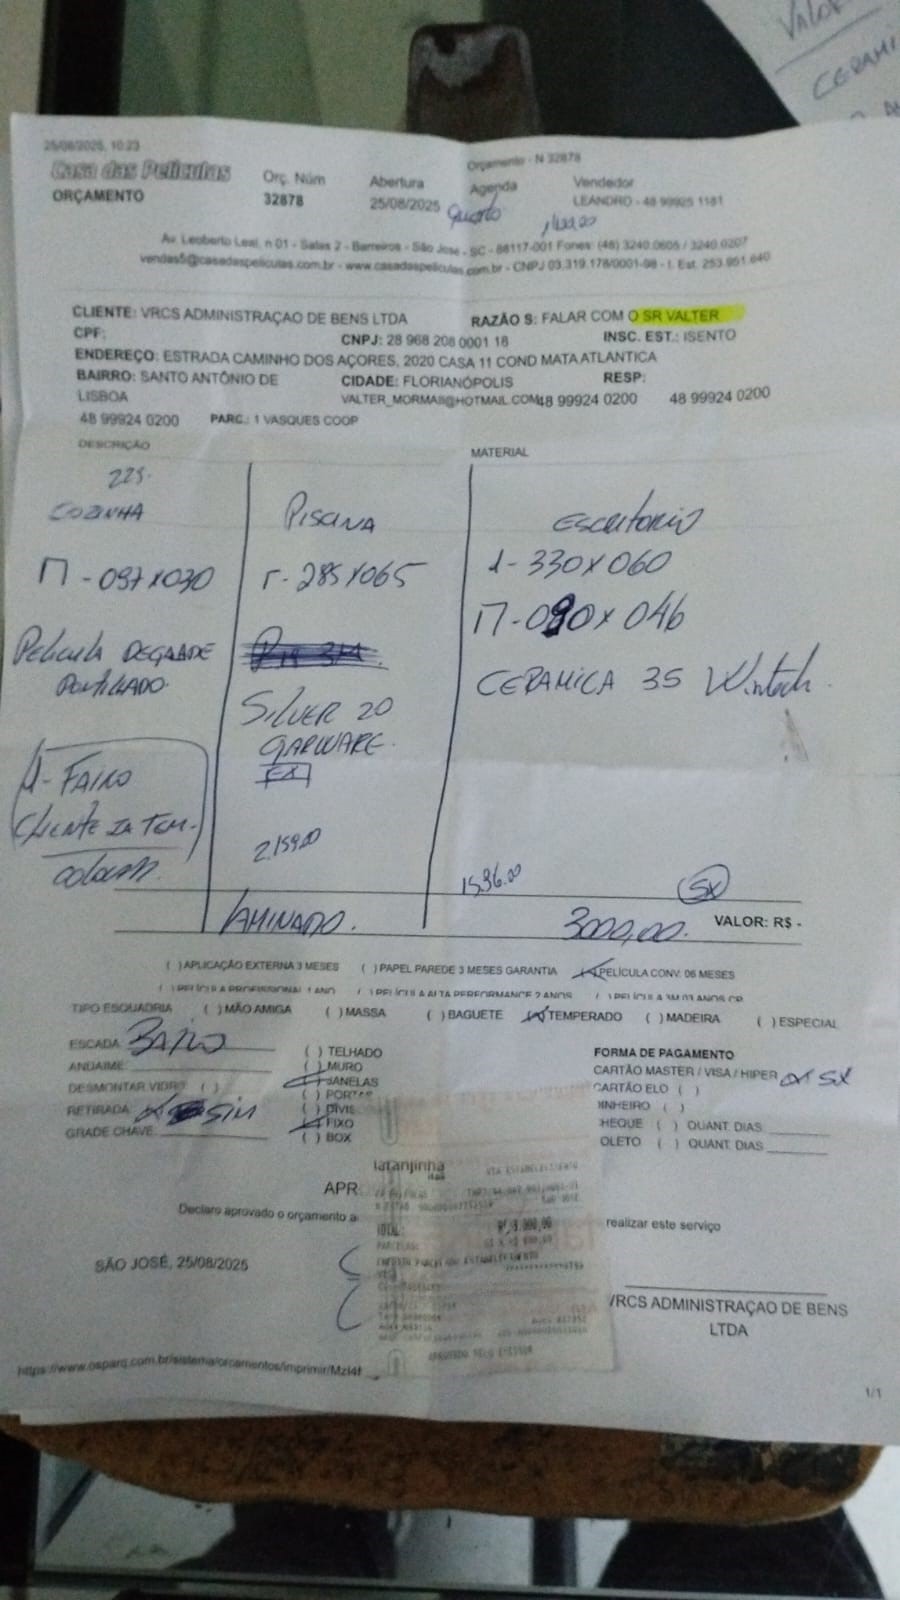 VALOR
CERAMI
25/08/2025, 10:23
Orçamento - N 32878
Casa das Películas
ORÇAMENTO
Orç. Núm
32878
Abertura
25/08/2025
Agenda
Vendedor
LEANDRO - 48 99925 1181
Av. Leoberto Leal, n 01 - Salas 2 - Barreiros - São José - SC - 88117-001 Fones: (48) 3240.0605 / 3240.0207
vendas5@casadaspeliculas.com.br - www.casadaspeliculas.com.br - CNPJ 03.319.178/0001-98 - I. Est. 253.951.640
CLIENTE: VRCS ADMINISTRAÇAO DE BENS LTDA RAZÃO S: FALAR COM O SR VALTER
CPF: CNPJ: 28 968 208 0001 18 INSC. EST.: ISENTO
ENDEREÇO: ESTRADA CAMINHO DOS AÇORES, 2020 CASA 11 COND MATA ATLANTICA
BAIRRO: SANTO ANTÔNIO DE CIDADE: FLORIANÓPOLIS RESP:
LISBOA VALTER_MORMAII@HOTMAIL.COM 48 99924 0200 48 99924 0200
48 99924 0200 PARC.: 1 VASQUES COOP
DESCRIÇÃO MATERIAL
225.
COZINHA
Π - 097x030
Película DEGRADE
PONTILHADO
CLIENTE JA TEM
PISCINA
Γ - 285x065
SILVER 20
GARWARE.
EX
2.159.00
ESCRITORIO
1 - 330x060
Π - 090x046
CERAMICA 35 Wintech.
1596.00
5X
LAMINADO. 3000,00. VALOR: R$ -
( ) APLICAÇÃO EXTERNA 3 MESES ( ) PAPEL PAREDE 3 MESES GARANTIA PELÍCULA CONV. 06 MESES
( ) PELÍCULA PROFISSIONAL 1 ANO ( ) PELÍCULA ALTA PERFORMANCE 2 ANOS ( ) PELÍCULA 3M 03 ANOS CP
TIPO ESQUADRIA ( ) MÃO AMIGA ( ) MASSA ( ) BAGUETE (X) TEMPERADO ( ) MADEIRA ( ) ESPECIAL
ESCADA:
ANDAIME:
DESMONTAR VIDRO ( )
RETIRADA: X SIM
GRADE CHAVE:
( ) TELHADO
( ) MURO
JANELAS
( ) PORTAS
( ) DIVIS
FIXO
( ) BOX
FORMA DE PAGAMENTO
CARTÃO MASTER / VISA / HIPER 5X
CARTÃO ELO ( )
INHEIRO ( )
HEQUE ( ) QUANT. DIAS
OLETO ( ) QUANT. DIAS
laranjinha
itaú
VIA ESTABELECIMENTO
TOTAL: R$ 3.000,00
APR
Declaro aprovado o orçamento a realizar este serviço
SÃO JOSÉ, 25/08/2025
VRCS ADMINISTRAÇAO DE BENS
LTDA
APROVADO PELO EMISSOR
1/1